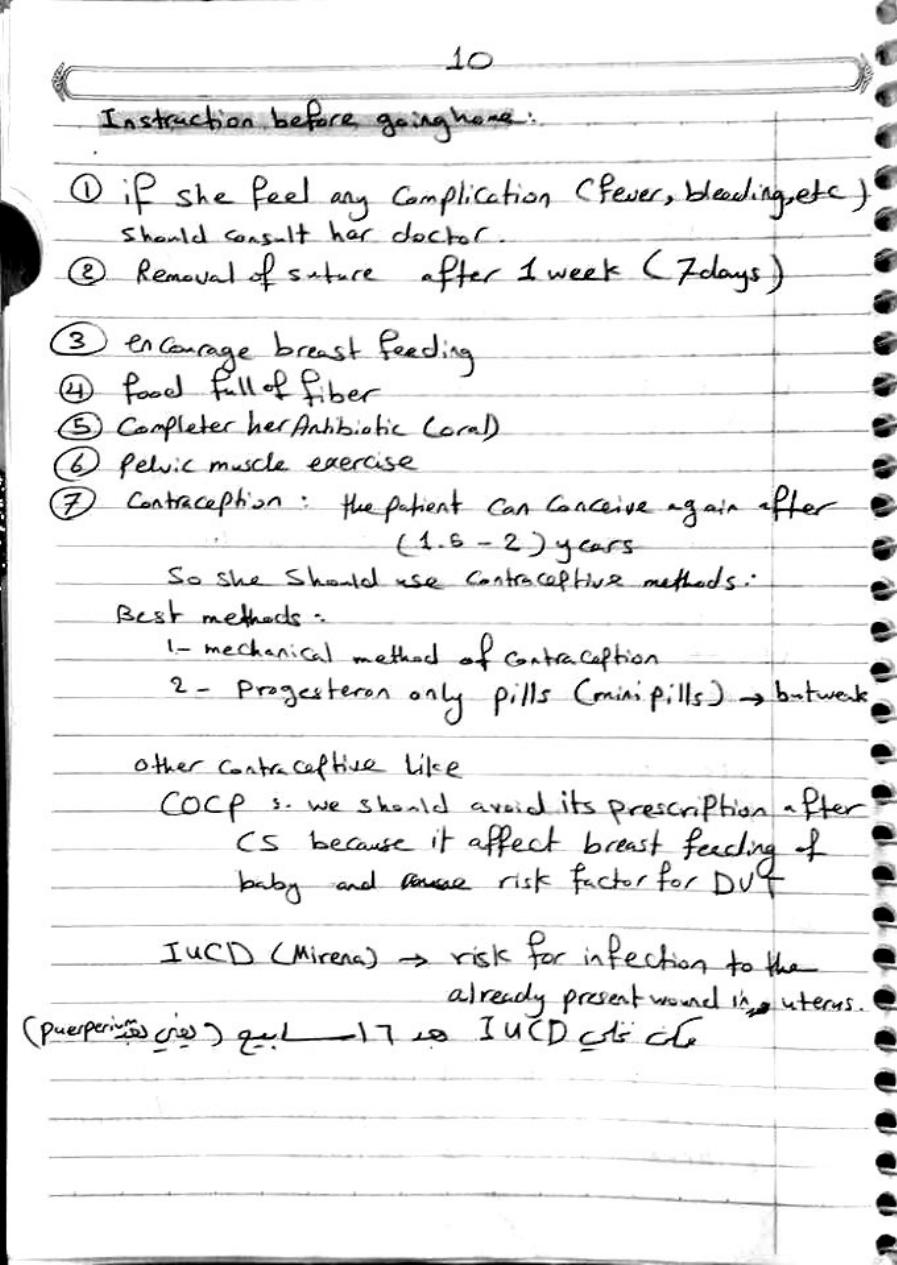 10
Instruction before going home:
① if she feel any complication (fever, bleeding, etc)
should consult her doctor.
② Removal of suture after 1 week (7days)
③ encourage breast feeding
④ food full of fiber
⑤ Completer her Antibiotic (oral)
⑥ Pelvic muscle exercise
⑦ Contraception: the patient can conceive again after
(1.5 - 2) years
So she should use contraceptive methods:
Best methods:
1- mechanical method of contraception
2- Progesteron only pills (mini pills) → but weak
other contraceptive like
COCP : we should avoid its prescription after
CS because it affect breast feeding of
baby and risk factor for DVT
IUCD (Mirena) → risk for infection to the
already present wound in uterus.
IUCD بعد 6 اسابيع (يعني بعد puerperium)